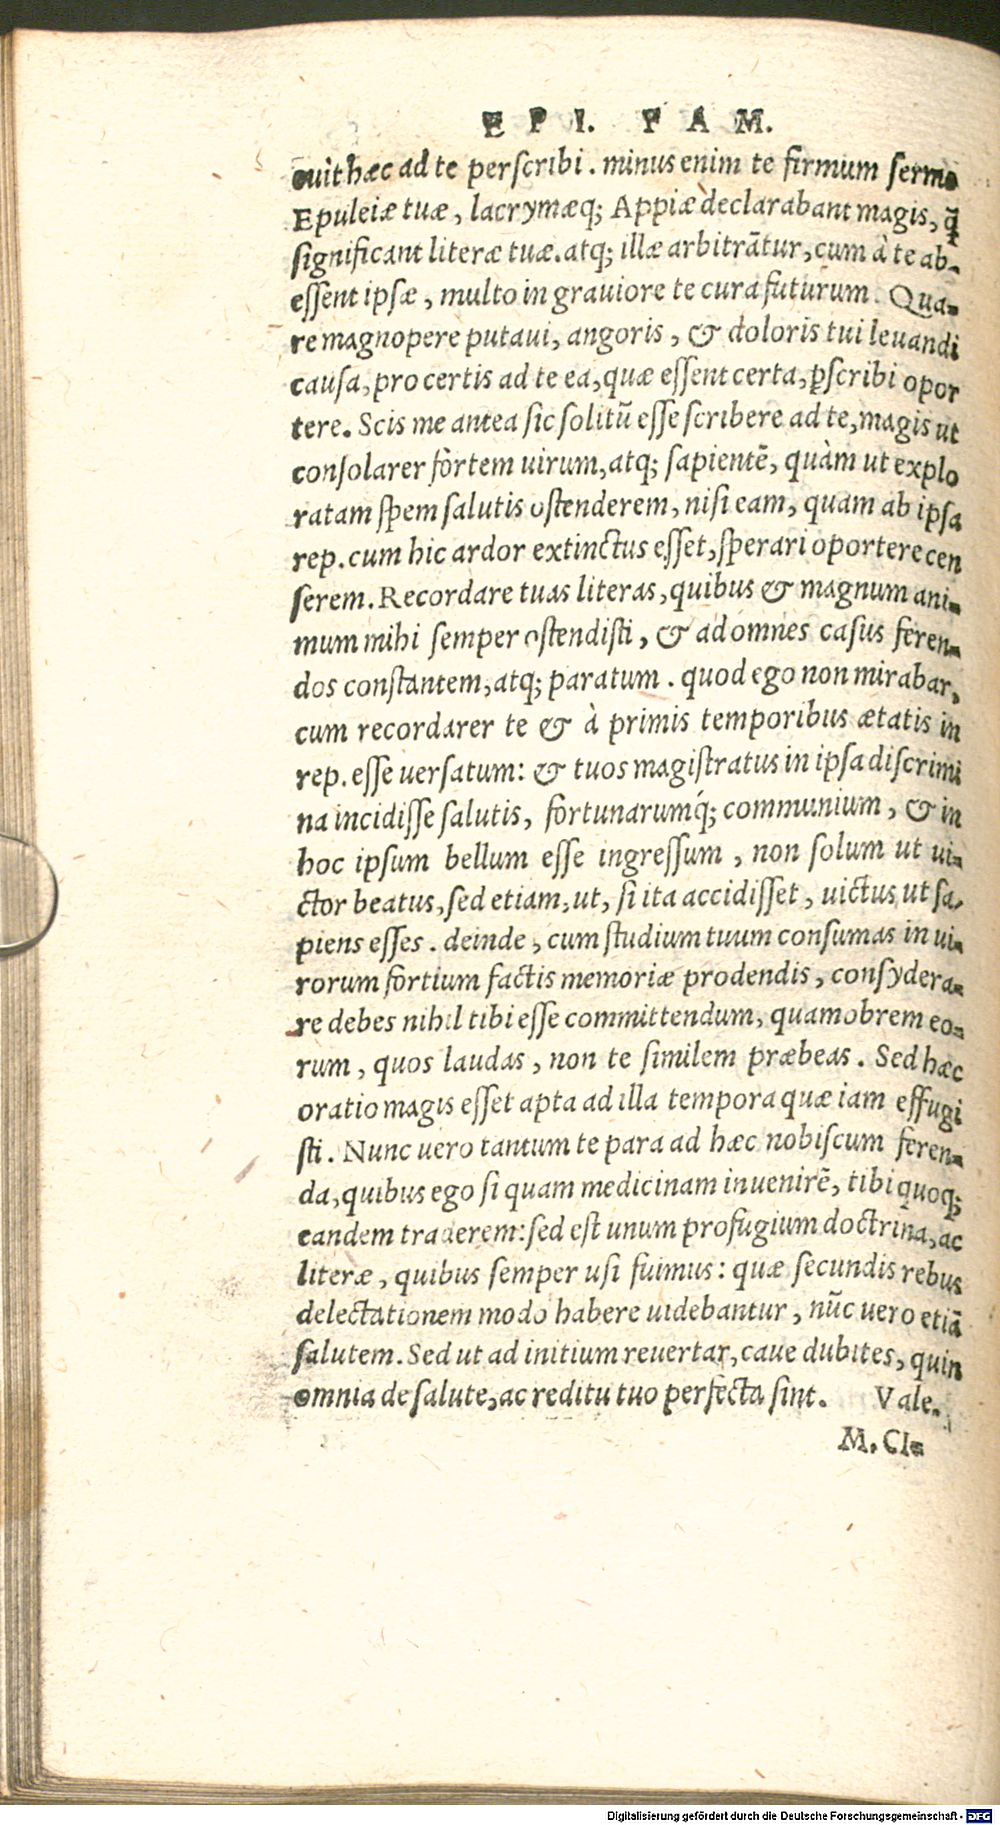 EPI. FAM.
ouit hæc ad te perscribi. minus enim te firmum sermo
Epuleiæ tuæ, lacrymæq; Appiæ declarabant magis, q̃
significant literæ tuæ. atq; illæ arbitrãtur, cum à te ab-
essent ipsæ, multo in grauiore te cura futurum. Qua-
re magnopere putaui, angoris, & doloris tui leuandi
causa, pro certis ad te ea, quæ essent certa, ꝑscribi opor
tere. Scis me antea sic solitũ esse scribere ad te, magis ut
consolarer fortem uirum, atq; sapientẽ, quàm ut explo
ratam spem salutis ostenderem, nisi eam, quam ab ipsa
rep. cum hic ardor extinctus esset, sperari oportere cen
serem. Recordare tuas literas, quibus & magnum ani-
mum mihi semper ostendisti, & ad omnes casus feren-
dos constantem, atq; paratum. quod ego non mirabar,
cum recordarer te & à primis temporibus ætatis in
rep. esse uersatum: & tuos magistratus in ipsa discrimi
na incidisse salutis, fortunarumq́; communium, & in
hoc ipsum bellum esse ingressum, non solum ut ui-
ctor beatus, sed etiam, ut, si ita accidisset, uictus, ut sa-
piens esses. deinde, cum studium tuum consumas in ui-
rorum fortium factis memoriæ prodendis, consydera-
re debes nihil tibi esse committendum, quamobrem eo-
rum, quos laudas, non te similem præbeas. Sed hæc
oratio magis esset apta ad illa tempora quæ iam effugi
sti. Nunc uero tantum te para ad hæc nobiscum feren-
da, quibus ego si quam medicinam inuenirẽ, tibi quoq;
eandem traderem: sed est unum profugium doctrina, ac
literæ, quibus semper usi fuimus: quæ secundis rebus
delectationem modo habere uidebantur, nũc uero etiã
salutem. Sed ut ad initium reuertar, caue dubites, quin
omnia de salute, ac reditu tuo perfecta sint. Vale.
M. CI-
Digitalisierung gefördert durch die Deutsche Forschungsgemeinschaft - DFG